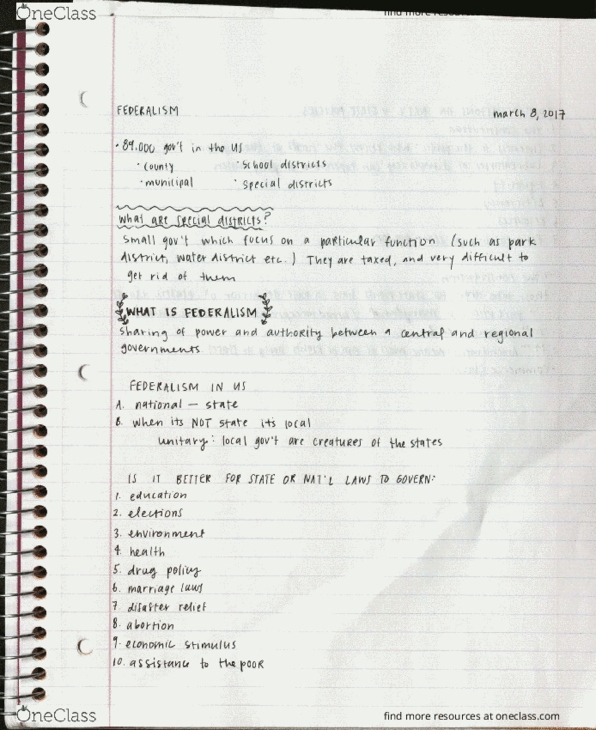 OneClass
find more resou
FEDERALISM march 8, 2017
· 89,000 gov't in the US
· county · school districts
· municipal · special districts
what are special districts?
small gov't which focus on a particular function (such as park
district, water district etc.) They are taxed, and very difficult to
get rid of them
WHAT IS FEDERALISM
sharing of power and authority between a central and regional
governments
FEDERALISM IN US
A. national — state
B. when its NOT state its local
unitary: local gov't are creatures of the states
IS IT BETTER FOR STATE OR NAT'L LAWS TO GOVERN:
1. education
2. elections
3. environment
4. health
5. drug policy
6. marriage laws
7. disaster relief
8. abortion
9. economic stimulus
10. assistance to the poor
OneClass
find more resources at oneclass.com